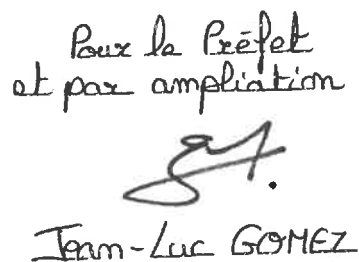 Pour le Préfet
et par ampliation
Jean-Luc GOMEZ